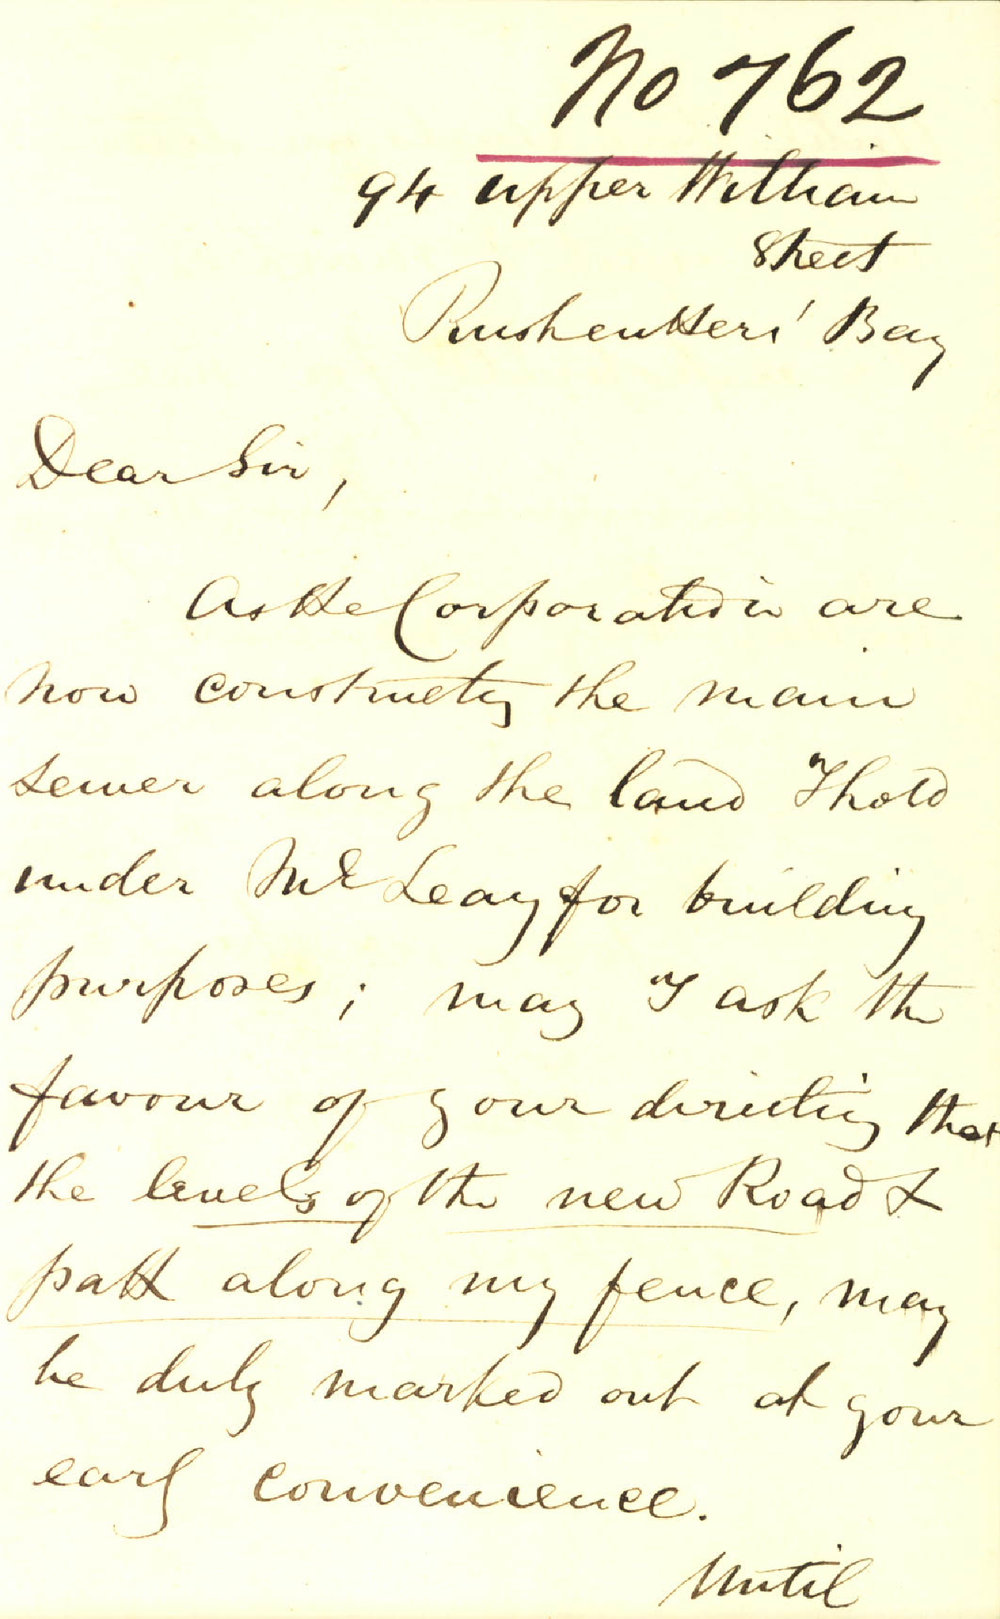 No 762
94 upper William
Street
Rushcutters' Bay
Dear Sir,
As the Corporation are
now constructg the main
sewer along the land I hold
under McLeay for building
purposes; may I ask the
favour of your directing that
the levels of the new Road &
path along my fence, may
be duly marked out at your
early convenience.
Until